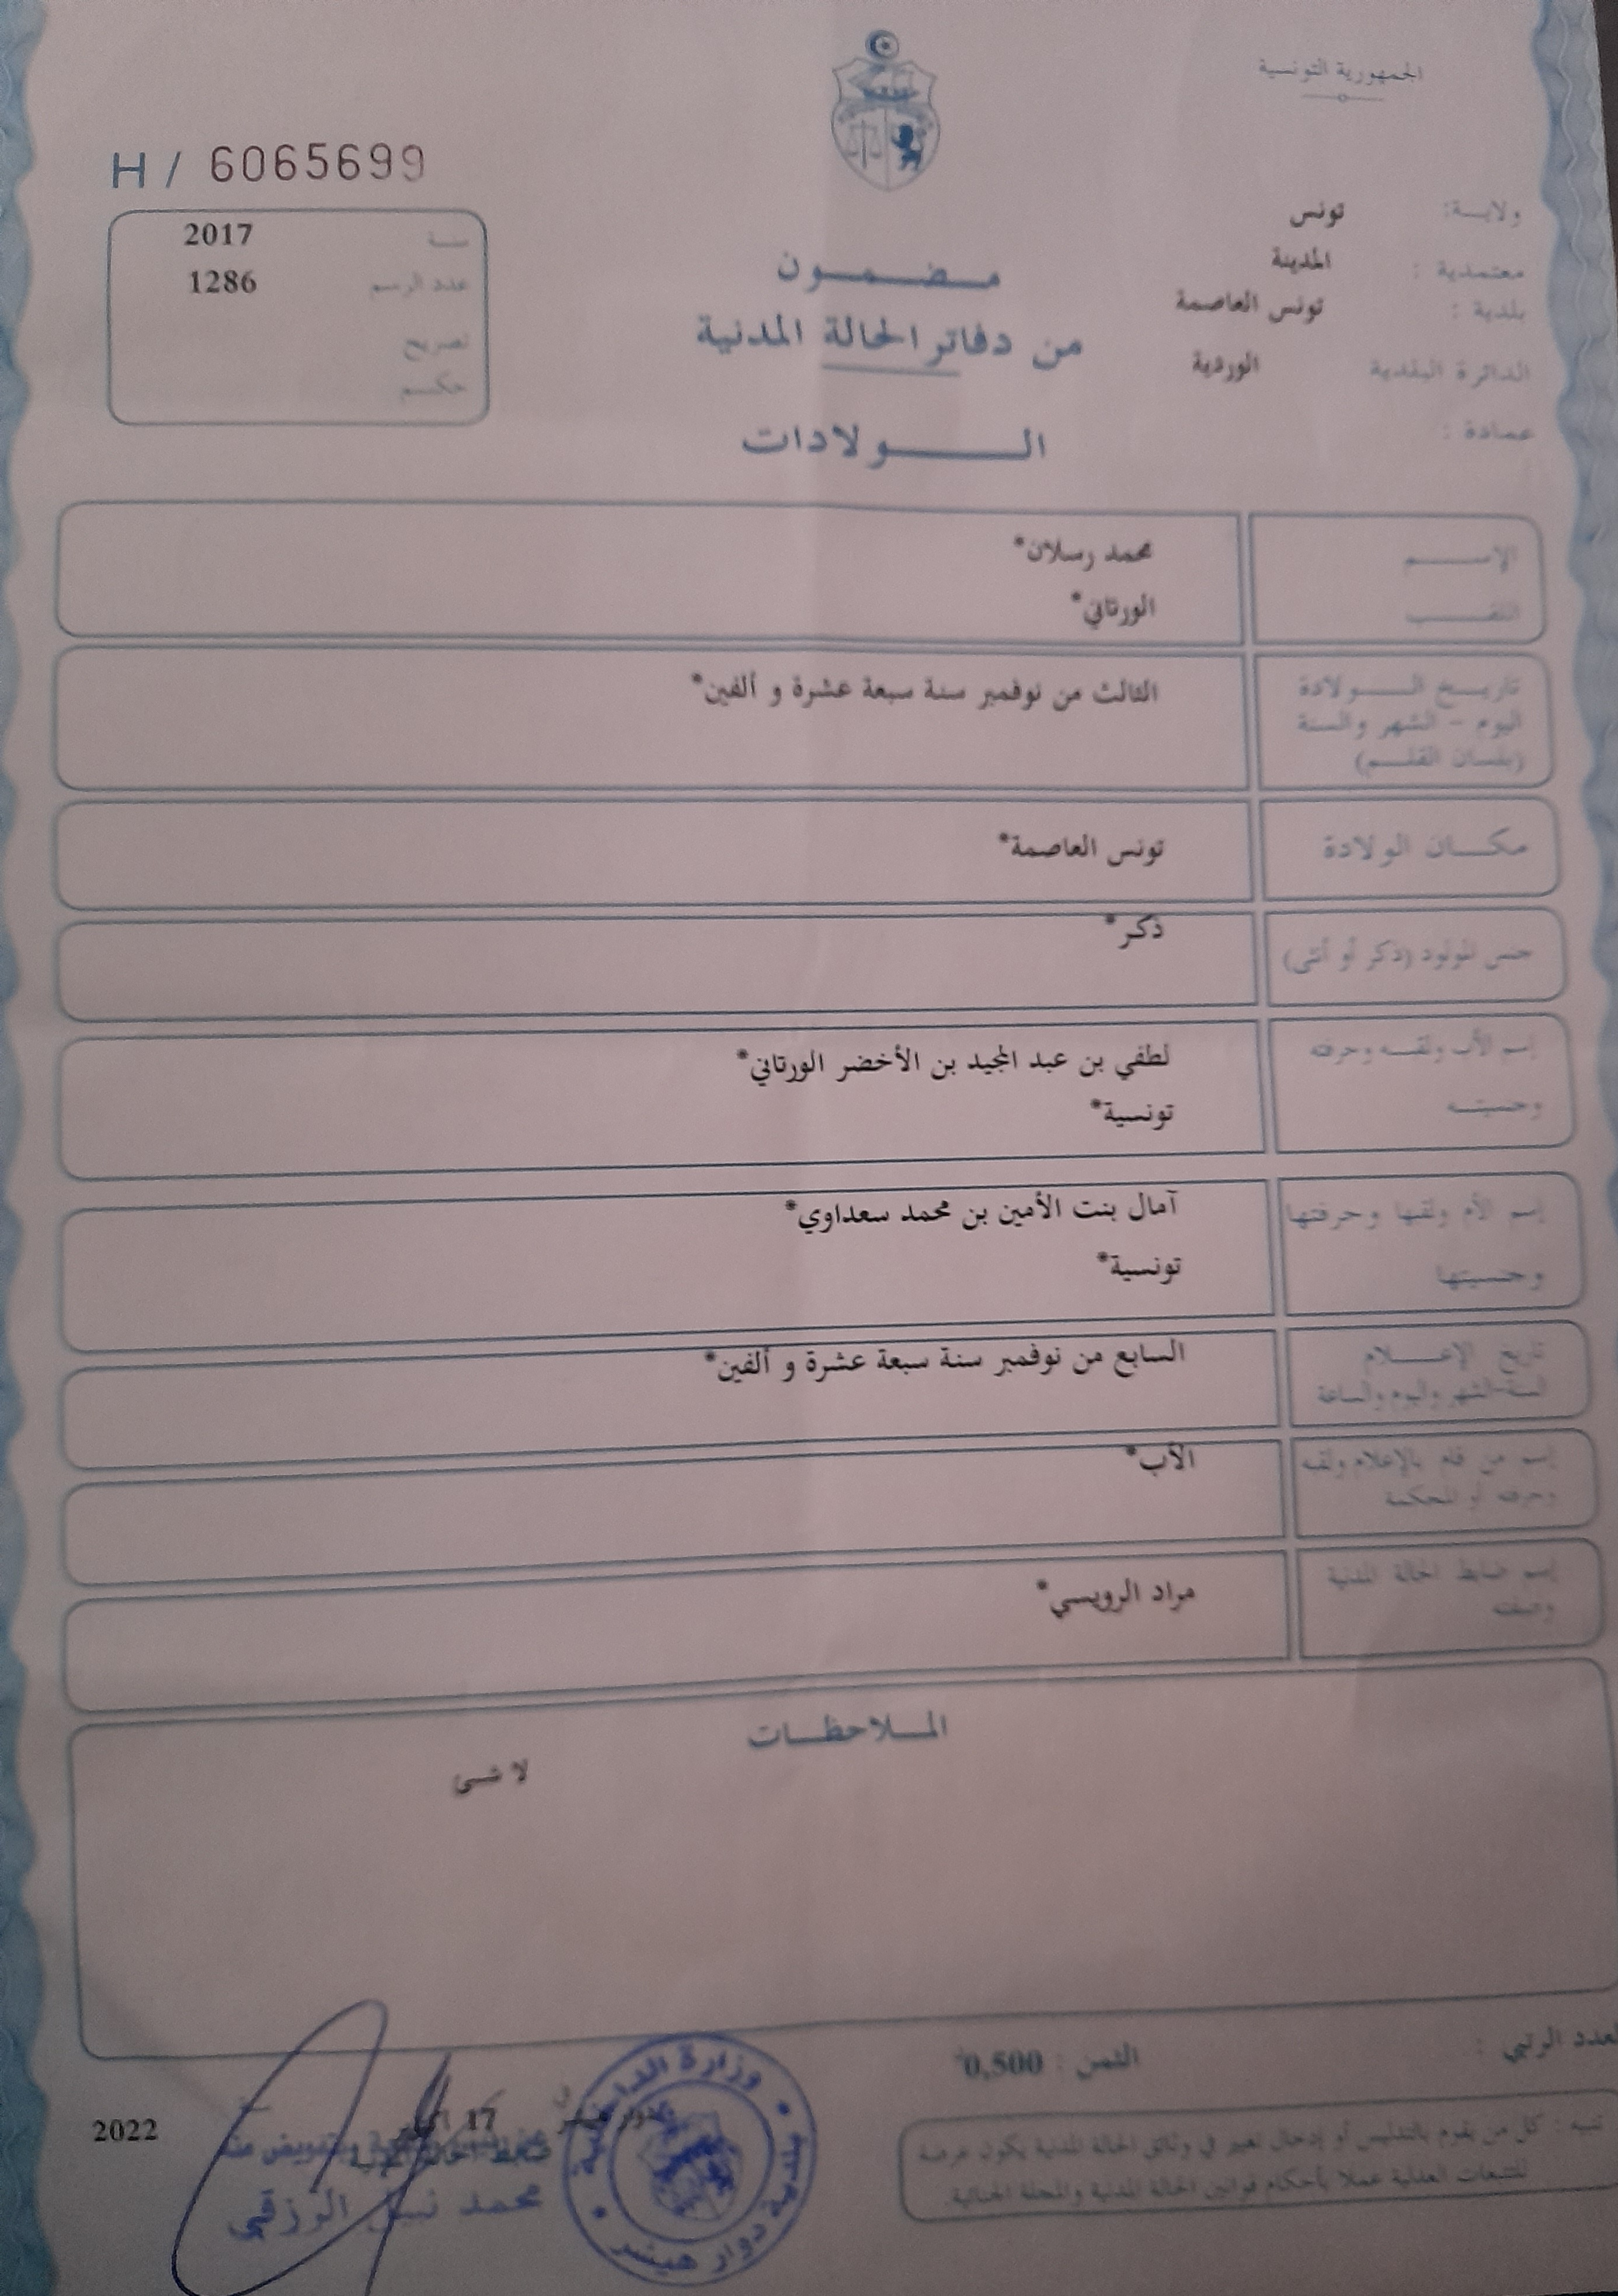 الجمهورية التونسية
H / 6065699
ولاية: تونس
معتمدية : المدينة
بلدية : تونس العاصمة
الدائرة البلدية الوردية
عمادة :
سنة 2017
عدد الرسم 1286
تصريح
حكم
مضمون
من دفاتر الحالة المدنية
الولادات
الإسم محمد رسلان*
اللقب الورتاني*
تاريخ الولادة
اليوم - الشهر والسنة
(بلسان القلم)
الثالث من نوفمبر سنة سبعة عشرة و ألفين*
مكان الولادة تونس العاصمة*
جنس المولود (ذكر أو أنثى) ذكر*
إسم الأب ولقبه وحرفته لطفي بن عبد المجيد بن الأخضر الورتاني*
وجنسيته تونسية*
إسم الأم ولقبها وحرفتها آمال بنت الأمين بن محمد سعداوي*
وجنسيتها تونسية*
تاريخ الإعلام السابع من نوفمبر سنة سبعة عشرة و ألفين*
السنة-الشهر واليوم والساعة
إسم من قام بالإعلام ولقبه الأب*
وحرفته أو المحكمة
إسم ضابط الحالة المدنية مراد الرويسي*
وصفته
الملاحظات
لا شئ
العدد الرتبي :
الثمن : 0,500
تنبيه : كل من يقوم بالتدليس أو إدخال تغيير في وثائق الحالة المدنية يكون عرضة
للتتبعات العدلية عملا بأحكام قوانين الحالة المدنية والمجلة الجنائية.
دوار هيشر في 17
2022
ضابط الحالة المدنية
وبتفويض منه
محمد نبيل الورقي
وزارة الداخلية
بلدية دوار هيشر